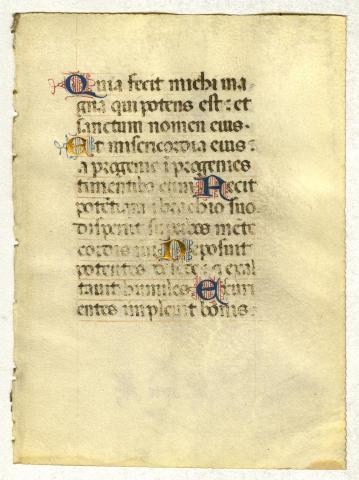 Quia fecit michi ma
gna qui potens est: et
sanctum nomen eius.
Et misericordia eius:
a progenie i progenies
timentibus eum Fecit
potētiam i brachio suo
dispersit supbos mēte
cordis sui Deposuit
potentes de sede: q exal
tauit humiles Esuri
entes impleuit bonis: